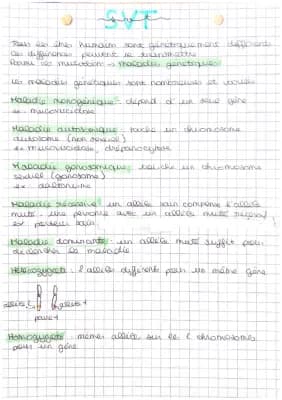 SVT
Tous les êtres humains sont génétiquement différents
ces différences peuvent se transmettre
maladies génétiques
Les maladies génétiques sont nombreuses et variées
Maladie monogénique : dépend d'un seul gène
ex : mucoviscidose
Maladie autosomique : touche un chromosome
autosome (non sexuel)
ex : mucoviscidose, drépanocytose
Maladie gonosomique : touche un chromosome
sexuel (gonosome)
ex : daltonisme
Maladie récessive : un allèle sain compense l'allèle
muté, une personne avec un allèle muté récessif
est porteur sain
Maladie dominante : un allèle muté suffit pour
déclencher la maladie
Hétérozygote : 2 allèles différents pour un même gène
allèle 1
paire 1
Homozygote : mêmes allèles sur les 2 chromosomes
pour un gène